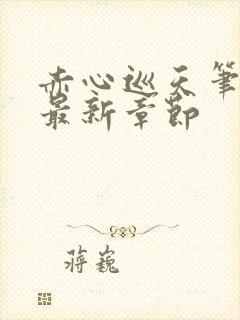 赤心巡天笔
最新章節
蒋巍